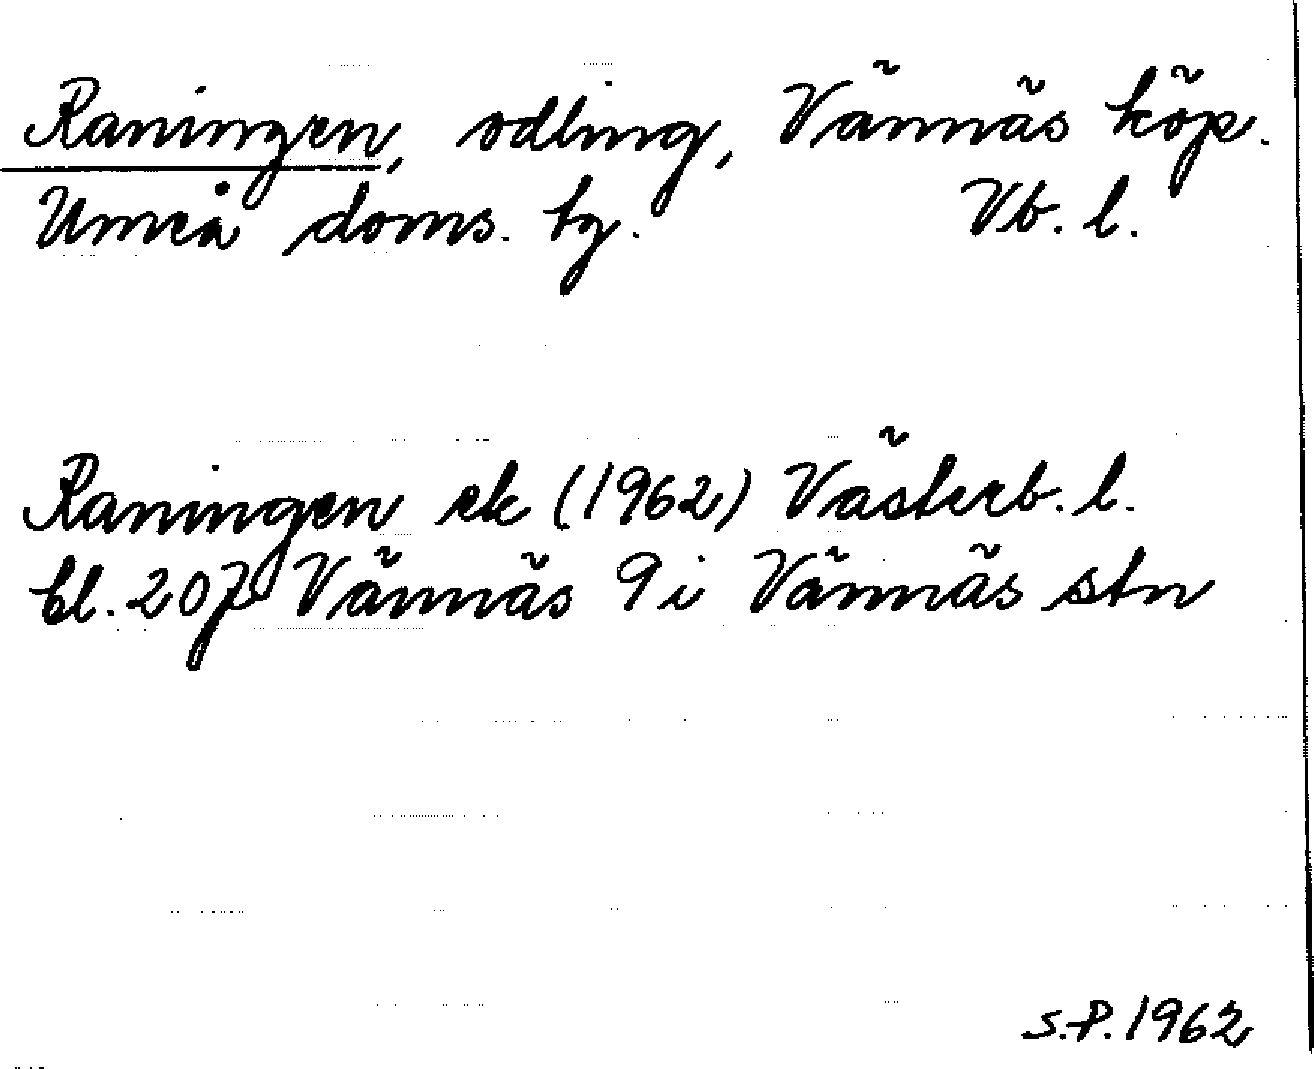 Raningen, odling, Vännäs köp.
Umeå doms. tg. Vb. l.
Raningen ek (1962) Västerb. l.
bl. 207 Vännäs 9i Vännäs stn
S.P. 1962